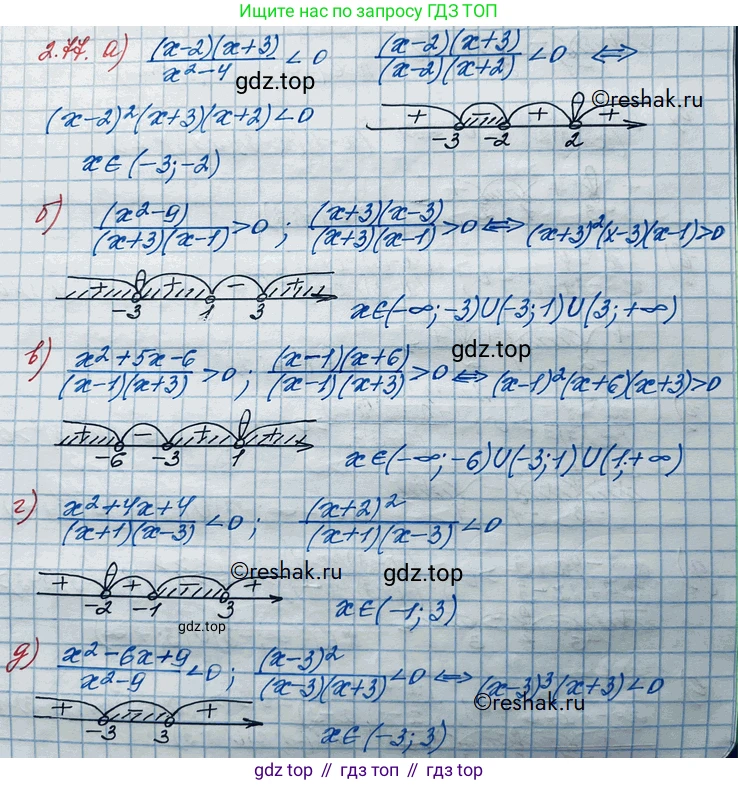 Пишите нас по запросу ГДЗ ТОП
2.77. а) (x-2)(x+3)/(x²-4) < 0   (x-2)(x+3)/(x-2)(x+2) < 0 ⇔
gdz.top
©reshak.ru
(x-2)²(x+3)(x+2) < 0
+ - + +
-3 -2 2
x∈(-3;-2)
б) (x²-9)/(x+3)(x-1) > 0 ; (x+3)(x-3)/(x+3)(x-1) > 0 ⇔ (x+3)²(x-3)(x-1) > 0
+ + - +
-3 1 3
x∈(-∞;-3)∪(-3;1)∪(3;+∞)
в) x²+5x-6/(x-1)(x+3) > 0 ; (x-1)(x+6)/(x-1)(x+3) > 0 ⇔ (x-1)²(x+6)(x+3) > 0
gdz.top
+ - + +
-6 -3 1
x∈(-∞;-6)∪(-3;1)∪(1;+∞)
г) x²+4x+4/(x+1)(x-3) < 0 ; (x+2)²/(x+1)(x-3) < 0
©reshak.ru
gdz.top
+ + - +
-2 -1 3
gdz.top
x∈(-1;3)
д) x²-6x+9/x²-9 < 0 ; (x-3)²/(x-3)(x+3) < 0 ⇔ (x-3)³(x+3) < 0
©reshak.ru
+ - +
-3 3
x∈(-3;3)
gdz top // гдз топ // gdz.top